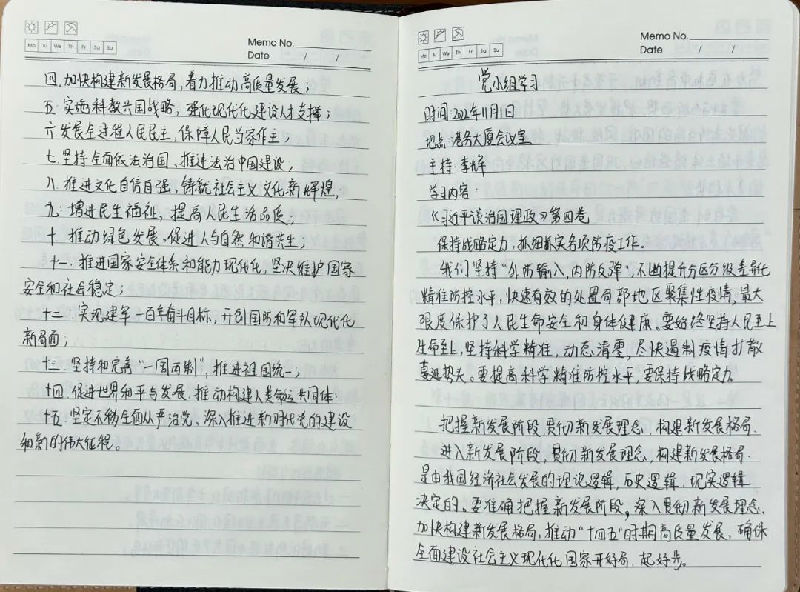 Mo Tu We Th Fr Sa Su
Memo No.
Date / /
四.加快构建新发展格局,着力推动高质量发展;
五.实施科教兴国战略,强化现代化建设人才支撑;
六.发展全过程人民民主,保障人民当家作主;
七.坚持全面依法治国,推进法治中国建设,
八.推进文化自信自强,铸就社会主义文化新辉煌,
九.增进民生福祉,提高人民生活品质;
十.推动绿色发展,促进人与自然和谐共生;
十一.推进国家安全体系和能力现代化,坚决维护国家
安全和社会稳定;
十二.实现建军一百年奋斗目标,开创国防和军队现代化
新局面;
十三.坚持和完善“一国两制”,推进祖国统一;
十四.促进世界和平与发展,推动构建人类命运共同体
十五.坚定不移全面从严治党,深入推进新时代党的建设
和新的伟大征程。
Mo Tu We Th Fr Sa Su
Memo No.
Date / /
党小组学习
时间:2022年11月1日
地点:港务大厦会议室
主持:李
学习内容:
《习近平谈治国理政》第四卷
保持战略定力,抓细抓实各项防疫工作。
我们坚持“外防输入,内防反弹”,不断提升分区分级差异化
精准防控水平,快速有效的处置局部地区聚集性疫情,最大
限度保护了人民生命安全和身体健康。要始终坚持人民至上
生命至上,坚持科学精准,动态清零,尽快遏制疫情扩散
蔓延势头。要提高科学精准防控水平,要保持战略定力
把握新发展阶段,贯彻新发展理念,构建新发展格局.
进入新发展阶段,贯彻新发展理念,构建新发展格局.
是由我国经济社会发展的理论逻辑,历史逻辑,现实逻辑
决定的,要准确把握新发展阶段,深入贯彻新发展理念.
加快构建新发展格局,推动“十四五”时期高质量发展,确保
全面建设社会主义现代化国家开好局,起好步。